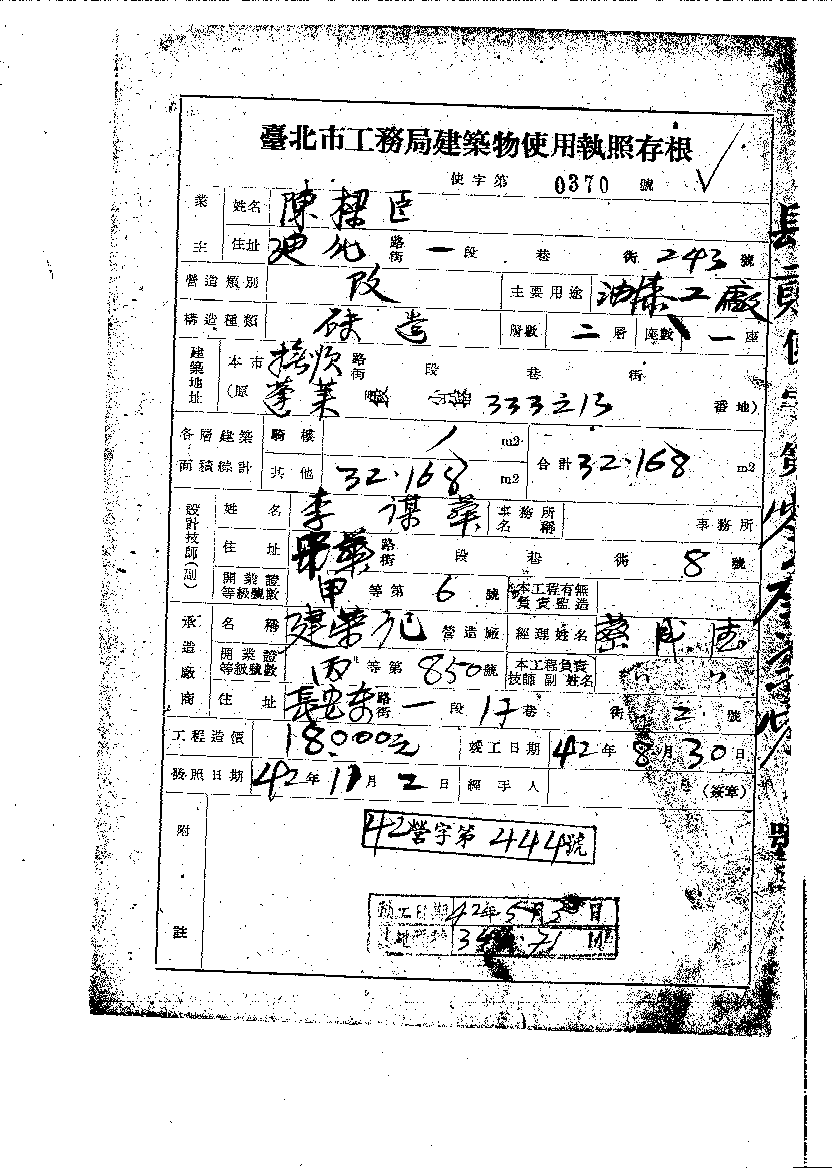 臺北市工務局建築物使用執照存根
使字第 0370 號
業主 姓名 陳樑臣
住址 迪化 路街 一 段 巷 街 243 號
營造類別 改 主要用途 油漆工廠
構造種類 磚造 階數 二層 座數 一座
建築地址 本市 撫順 路街 段 巷 街
(原 蓬萊 333之13 番地)
各層建築面積綜計 騎樓 / m2 合計 32.168 m2
其他 32.168 m2
設計技師(副) 姓名 李謀華 事務所名稱 事務所
住址 華 路街 段 巷 街 8 號
開業證等級號數 甲 等第 6 號 本工程有無負責監造
承造廠商 名稱 建榮 營造廠 經理姓名 蔡
開業證等級號數 丙 等第 850 號 本工程負責技師副姓名 〃 〃
住址 長安東 路街 一 段 17 巷 街 2 號
工程造價 18000元 竣工日期 42年8月30日
發照日期 42年11月2日 經手人 (簽章)
附註
42營字第444號
動工日期 42年5月3 日